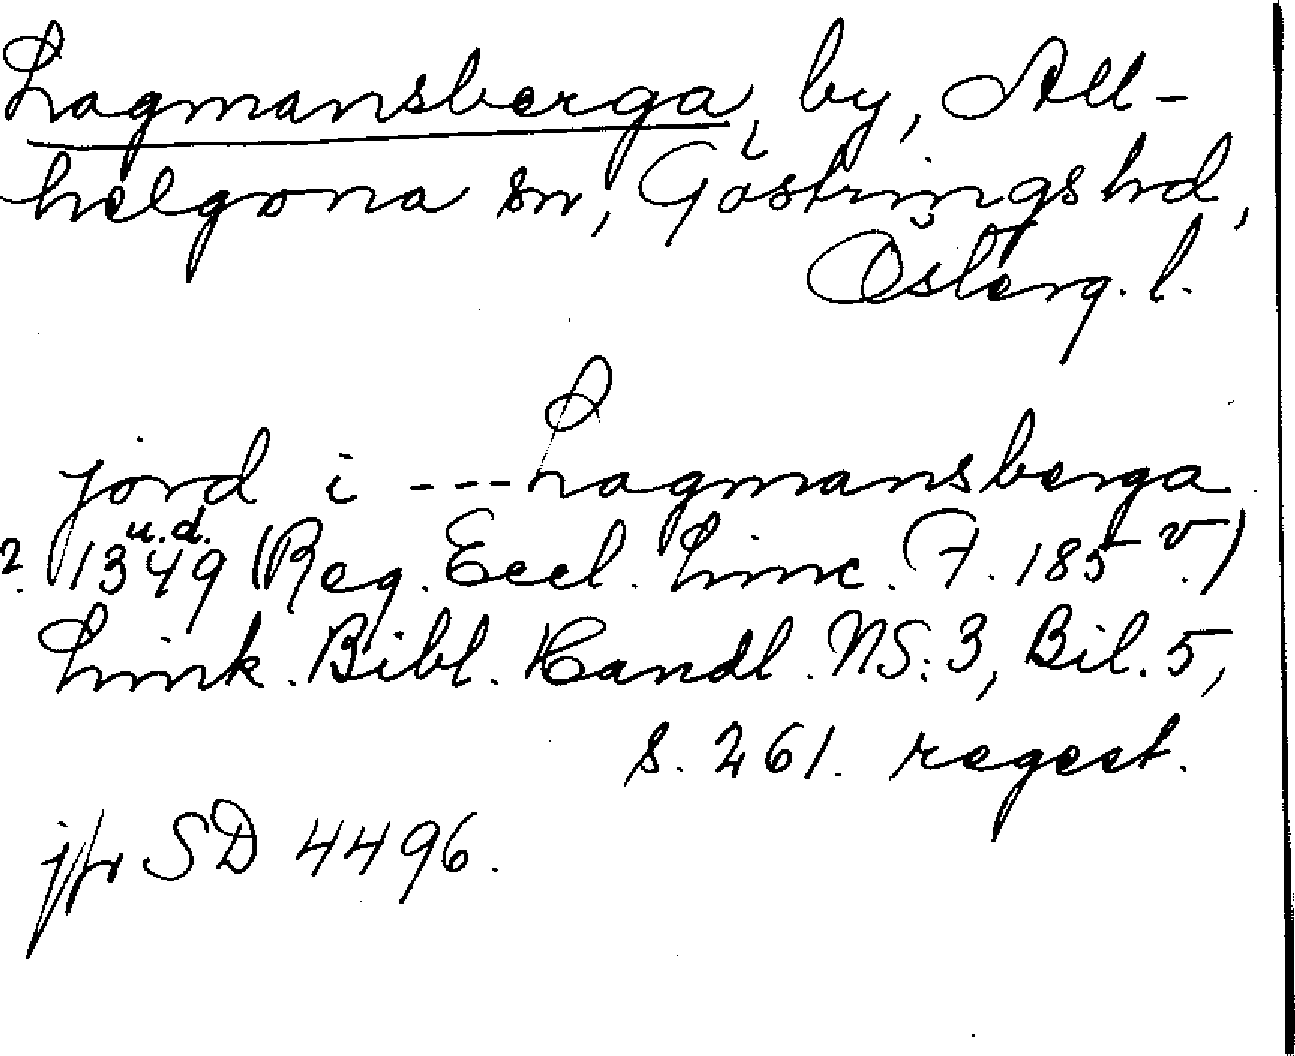 Lagmansberga, by, All-
helgona sn, i Göstrings hd,
Österg. l.
jord i --- Lagmansberga
u.d.
? 1349 (Reg. Eccl. Linc. F. 185 v.)
Link. Bibl. Handl. NS. 3, Bil. 5,
s. 261. regest.
jfr SD 4496.